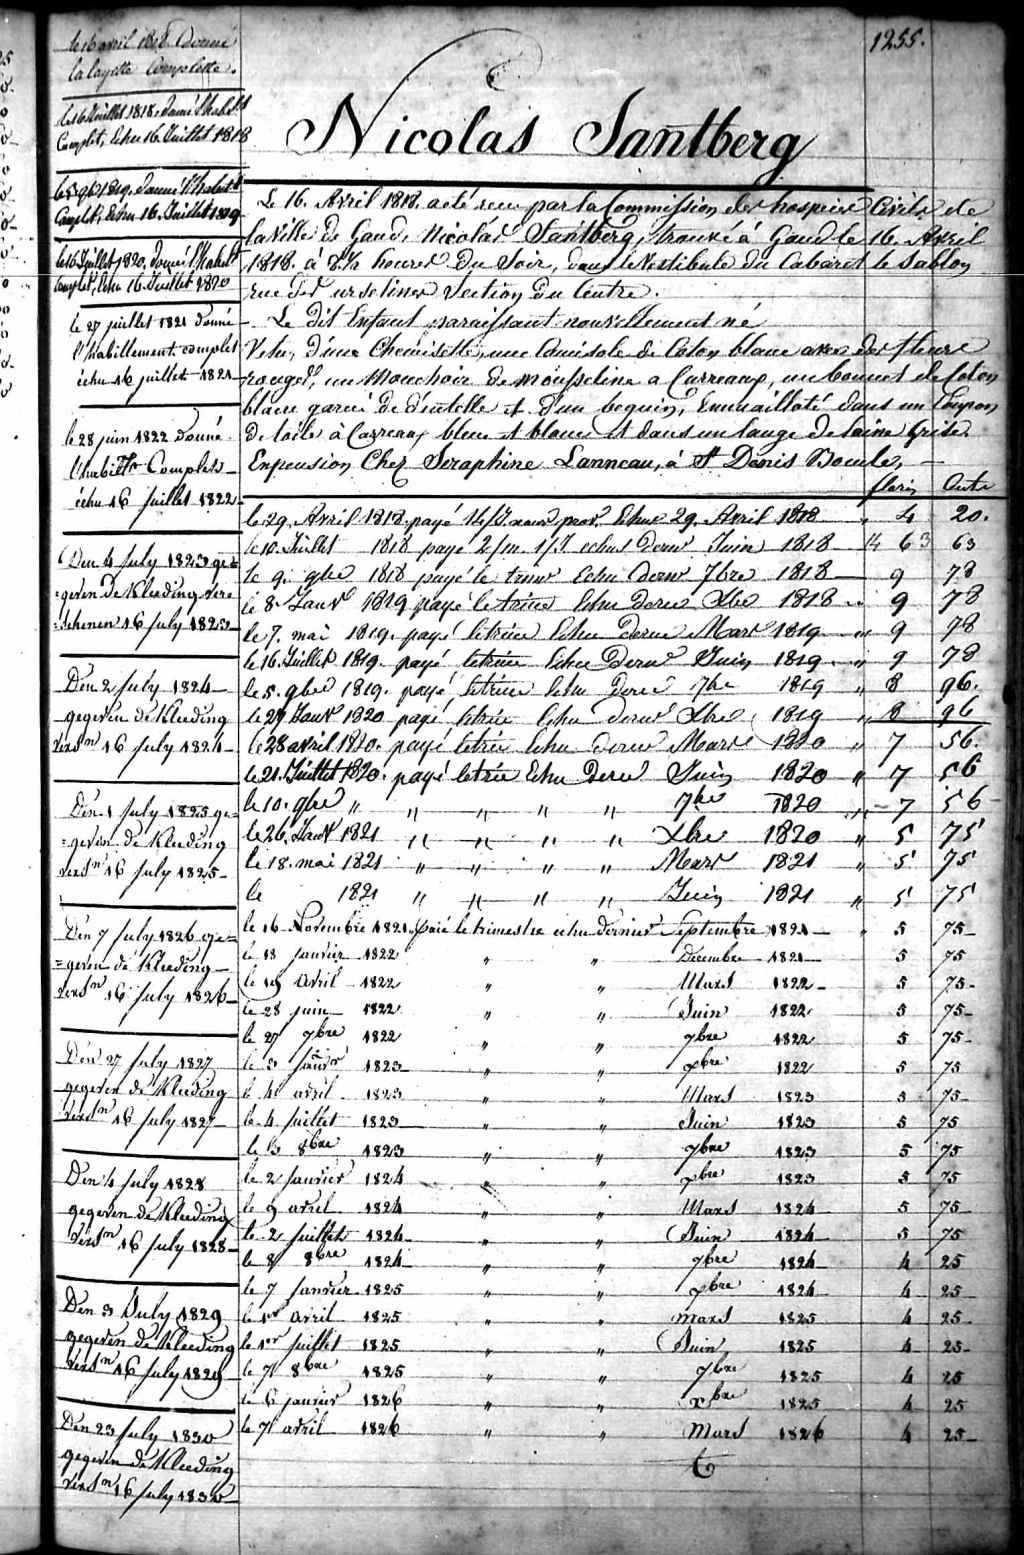 1255.
Nicolas Santberg
Le 16. Avril 1818. a été recu par la Commission des hospices Civils de
la Ville de Gand, Nicolas Santberg, trouvé à Gand le 16. Avril
1818. à 8½ heures du Soir, dans le Vestibule du Cabaret le Sablon
rue des urselines Section du Centre.
Le dit Enfant paraissant nouvellement né
Vetu, d'une Chemisette, une Camisole de Coton blanc avec des fleurs
rouges, un Mouchoir de mousseline a Carreaux, un bonnet de Coton
blanc garni de dentelle et d'un beguin, Emmailloté dans un Coupon
de toile à Carreaux bleu et blanc et dans un lange de laine Grise.
En pension Chez Seraphine Lanneau, à St Denis Boucle,
florins Cents
le 29. Avril 1818. payé echu 29. Avril 1818 " 4 20.
le 10. Juillet 1818 payé 2/m. echus dernr Juin 1818 63 63
le 9. 9bre 1818 payé le trimr Echu dernr 7bre 1818 9 78
le 8. Janvr 1819 payé le trime Echu dernr Xbre 1818 " 9 78
le 7. mai 1819. payé letrime Echu dernr Mars 1819 " 9 78
le 16. Juillet 1819. payé letrime Echu dernr Juin 1819. " 9 78
le 5. 9bre 1819. payé, letrime Echu dernr 7bre 1819 " 8 96.
le 27 Janvr 1820 payé, letrie Echu dernr Xbre 1819 " 8 96
le 28 avril 1820. payé letrie Echu dernr Mars 1820 " 7 56.
le 21. Juillet 1820. payé letrie Echu dernr Juin 1820 " 7 56
le 10. 9bre " " " " " 7bre 1820 " 7 56
le 26. Janvr 1821 " " " " Xbre 1820 " 5 75
le 18. mai 1821 " " " " Mars 1821 " 5 75
le 1821 " " " " Juin 1821 " 5 75
le 16 Novembre 1821. païé le trimestre echu dernier Septembre 1821 " 5 75
le 18 janvier 1822 " " Decembre 1821 5 75
le 19 avril 1822 " " Mars 1822 5 75
le 28 juin 1822 " " Juin 1822 5 75
le 27 9bre 1822 " " 7bre 1822 5 75
le 3 janvr 1823 " " xbre 1822 5 75
le 4 avril 1823 " " Mars 1823 5 75
le 4 juillet 1823 " " Juin 1823 5 75
le 3 8bre 1823 " " 7bre 1823 5 75
le 2 janvier 1824 " " xbre 1823 5 75
le 9 avril 1824 " " Mars 1824 5 75
le 2 juillet 1824 " " Juin 1824 5 75
le 8 8bre 1824 " " 7bre 1824 4 25
le 7 janvier 1825 " " xbre 1824 4 25
le 1er avril 1825 " " mars 1825 4 25
le 1er juillet 1825 " " Juin 1825 4 25
le 7 8bre 1825 " " 7bre 1825 4 25
le 6 janvier 1826 " " xbre 1825 4 25
le 7 avril 1826 " " Mars 1826 4 25
le 16 avril 1818 Donné
la layette Complette.
le 16 Juillet 1818, donné l'habilt
Complet, Echu 16. Juillet 1818
le 5 9bre 1819. donné l'habilt
Complt, Echu 16. Juillet 1819
le 16 Juillet 1820, donné l'habilt
Complet, Echu 16 Juillet 1820
le 27 juillet 1821 donné
l'habillement complet
échu 16 juillet 1821
le 28 juin 1822 Donné
l'habillt Complet
échu 16 juillet 1822
Den 4 July 1823 ge=
=geven de Kleeding vers=
=schenen 16 July 1823
Den 2 July 1824
gegeven de Kleeding
versn 16 July 1824
Den 1 July 1825 ge=
=geven de Kleeding
versn 16 July 1825
Den 7 July 1826 ge=
=geven de Kleeding
versn 16 July 1826
Den 27 July 1827
gegeven de Kleeding
versn 16 July 1827
Den 4 July 1828
gegeven de Kleeding
versn 16 July 1828
Den 3 July 1829
gegeven de Kleeding
versn 16 July 1829
Den 23 July 1830
gegeven de Kleeding
versn 16 July 1830